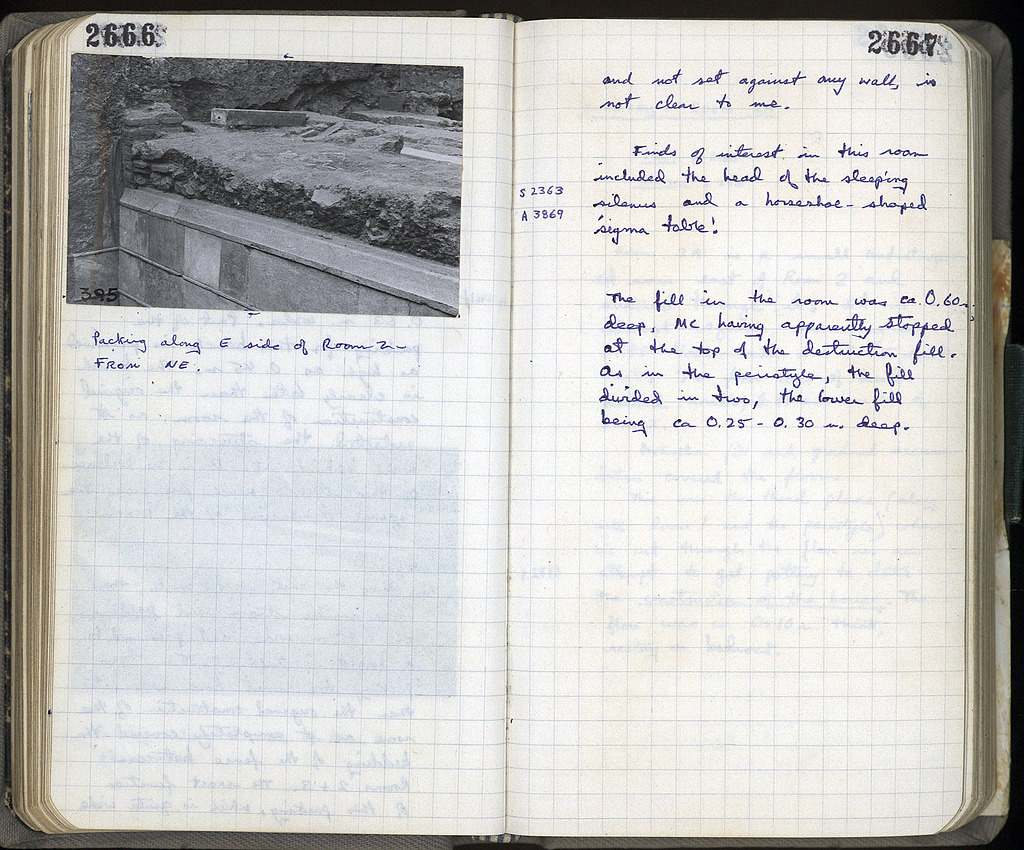 2666
395
Packing along E side of Room 2 -
FROM NE.
2667
and not set against any wall, is
not clear to me.
Finds of interest in this room
included the head of the sleeping
S 2363
silenus and a horseshoe-shaped
A 3869
'sigma table'.
The fill in the room was ca. 0.60 m.
deep, MC having apparently stopped
at the top of the destruction fill.
As in the peristyle, the fill
divided in two, the lower fill
being ca 0.25 - 0.30 m. deep.